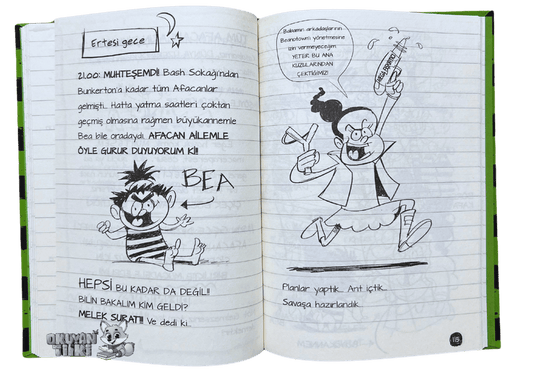 Ertesi gece
21.00: MUHTEŞEMDİ! Bash Sokağı'ndan
Bunkerton'a kadar tüm Afacanlar
gelmişti... Hatta yatma saatleri çoktan
geçmiş olmasına rağmen büyükannemle
Bea bile oradaydı. AFACAN AİLEMLE
ÖYLE GURUR DUYUYORUM Kİ!!
BEA
HEPSİ BU KADAR DA DEĞİL!!
BİLİN BAKALIM KİM GELDİ?
MELEK SURAT!!! Ve dedi ki...
OKUYAN
TİLKİ
Babamın arkadaşlarının
Beanotown'ı yönetmesine
izin vermeyeceğim.
YETER BU ANA
KUZULARINDAN
ÇEKTİĞİMİZ!
Planlar yaptık... Ant içtik...
Savaşa hazırlandık...